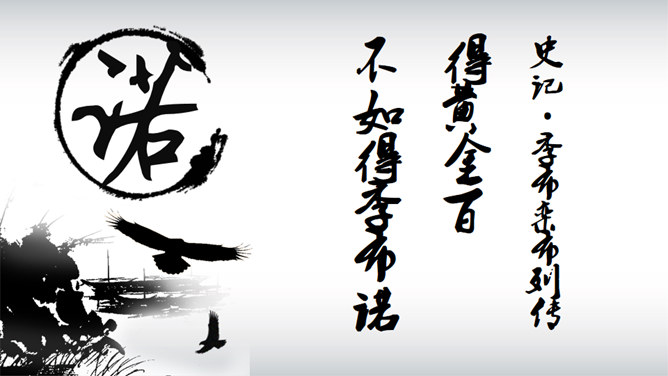 史记·季布栾布列传
得黄金百
不如得季布诺
诺